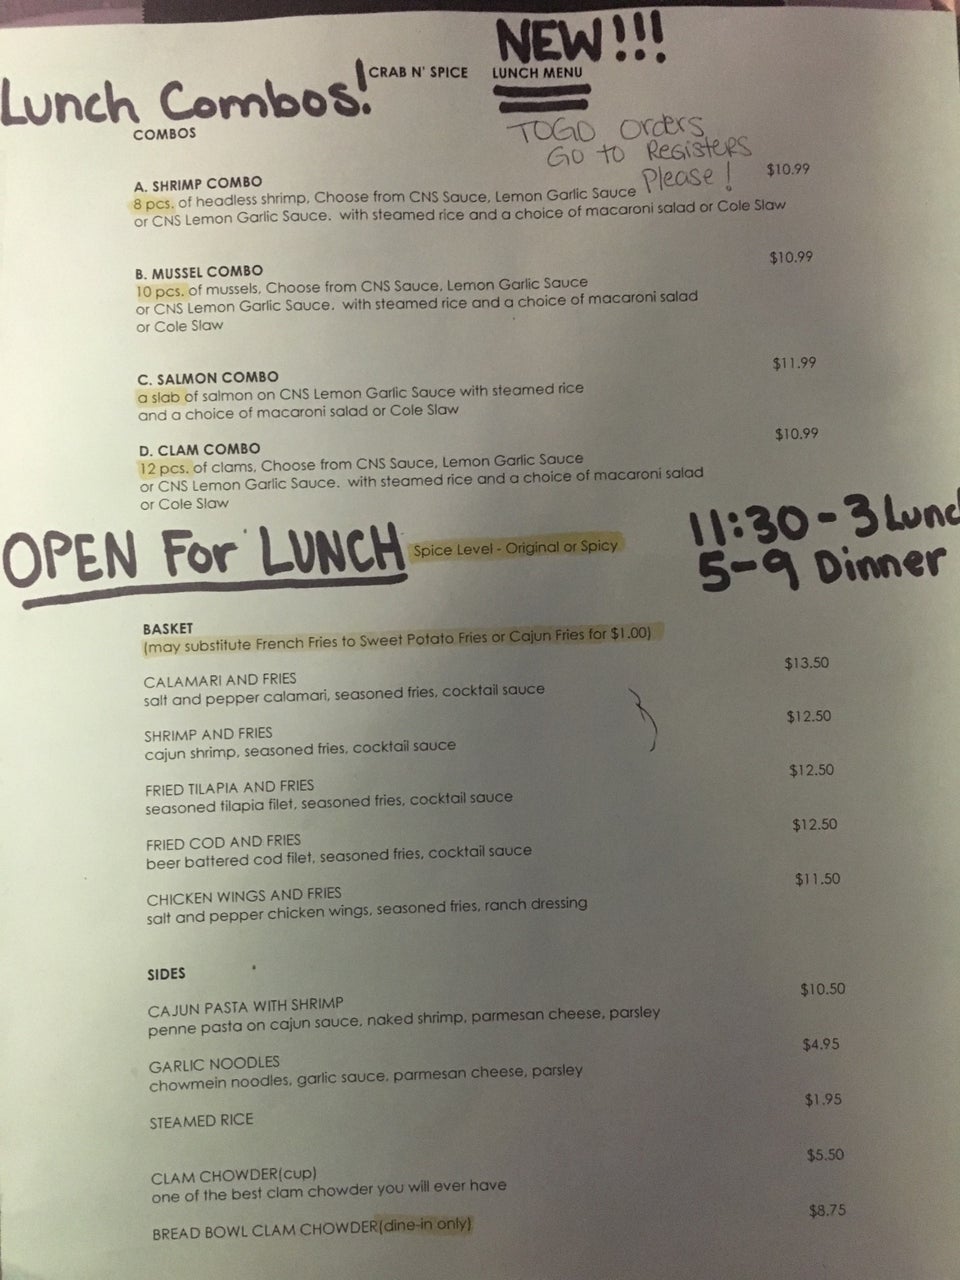 NEW!!!
Lunch Combos!
CRAB N' SPICE LUNCH MENU
COMBOS
TOGO Orders
Go to Registers
Please!
A. SHRIMP COMBO $10.99
8 pcs. of headless shrimp, Choose from CNS Sauce, Lemon Garlic Sauce
or CNS Lemon Garlic Sauce. with steamed rice and a choice of macaroni salad or Cole Slaw
B. MUSSEL COMBO $10.99
10 pcs. of mussels, Choose from CNS Sauce, Lemon Garlic Sauce
or CNS Lemon Garlic Sauce. with steamed rice and a choice of macaroni salad
or Cole Slaw
C. SALMON COMBO $11.99
a slab of salmon on CNS Lemon Garlic Sauce with steamed rice
and a choice of macaroni salad or Cole Slaw
D. CLAM COMBO $10.99
12 pcs. of clams, Choose from CNS Sauce, Lemon Garlic Sauce
or CNS Lemon Garlic Sauce. with steamed rice and a choice of macaroni salad
or Cole Slaw
OPEN For LUNCH
Spice Level - Original or Spicy
11:30-3 Lunc
5-9 Dinner
BASKET
(may substitute French Fries to Sweet Potato Fries or Cajun Fries for $1.00)
CALAMARI AND FRIES $13.50
salt and pepper calamari, seasoned fries, cocktail sauce
SHRIMP AND FRIES $12.50
cajun shrimp, seasoned fries, cocktail sauce
FRIED TILAPIA AND FRIES $12.50
seasoned tilapia filet, seasoned fries, cocktail sauce
FRIED COD AND FRIES $12.50
beer battered cod filet, seasoned fries, cocktail sauce
CHICKEN WINGS AND FRIES $11.50
salt and pepper chicken wings, seasoned fries, ranch dressing
SIDES
CAJUN PASTA WITH SHRIMP $10.50
penne pasta on cajun sauce, naked shrimp, parmesan cheese, parsley
GARLIC NOODLES $4.95
chowmein noodles, garlic sauce, parmesan cheese, parsley
STEAMED RICE $1.95
CLAM CHOWDER(cup) $5.50
one of the best clam chowder you will ever have
BREAD BOWL CLAM CHOWDER(dine-in only) $8.75